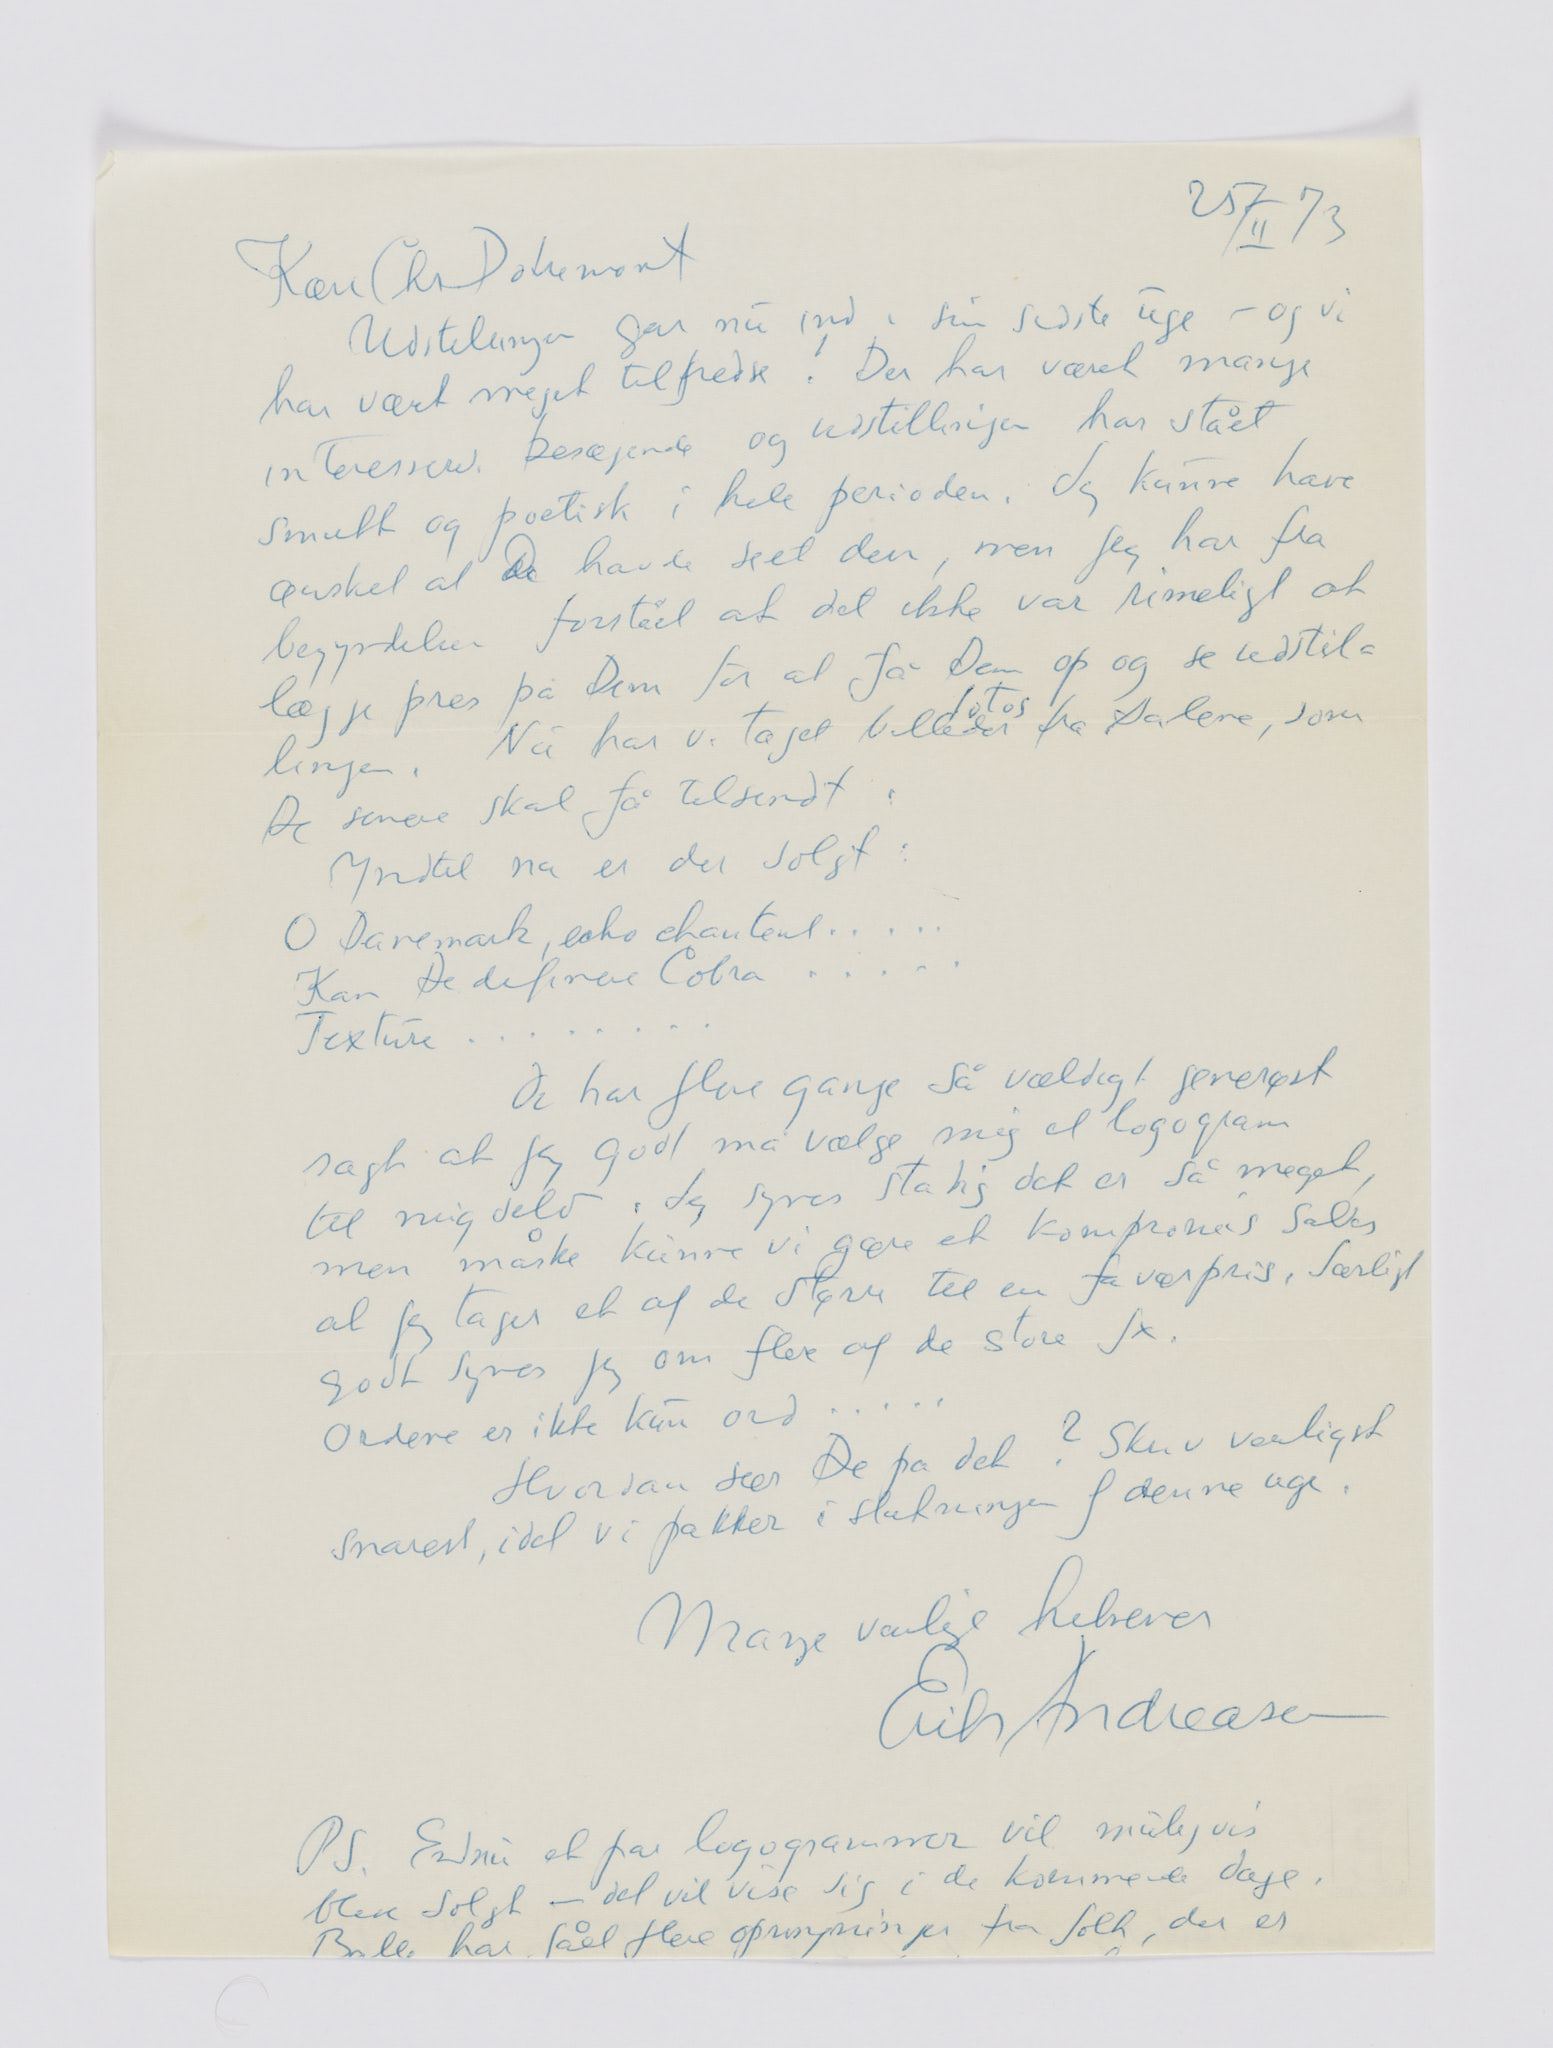 25/II 73
Kære Chr Dotremont
Udstillingen går nu ind i sin sidste uge – og vi
har vært meget tilfredse! Der har været mange
interessered. besøgende og udstillingen har stået
smukt og poetisk i hele perioden. Jeg kunne have
ønsket at De havde seet den, men jeg har fra
begyndelsen forstået at det ikke var rimeligt at
lægge pres på Dem for at få Dem op og se udstil=
lingen. Nu har vi taget billeder fotos fra salene, som
De senere skal få tilsendt.
Indtil nu er der solgt:
O Danemark, echo chantent.....
Kan De definere Cobra .....
Texture ........
De har flere gange så vældigt generøst
sagt at jeg godt må vælge mig et logogram
til mig selv. Jeg synes stadig det er så meget,
men måske kunne vi gøre et kompromis således
at jeg tager et af de større til en favørpris. Særligt
godt synes jeg om flere af de store fx.
Ordene er ikke kun ord .....
Hvordan seer De på det? Skriv venligst
snarest, idet vi pakker i slutningen af denne uge.
Mange venlige hilsener
Erik Andreasen
PS. Endnu et par logogrammer vil muligvis
blive solgt – det vil vise sig i de kommende dage.
har fået flere opringninger fra folk, der er